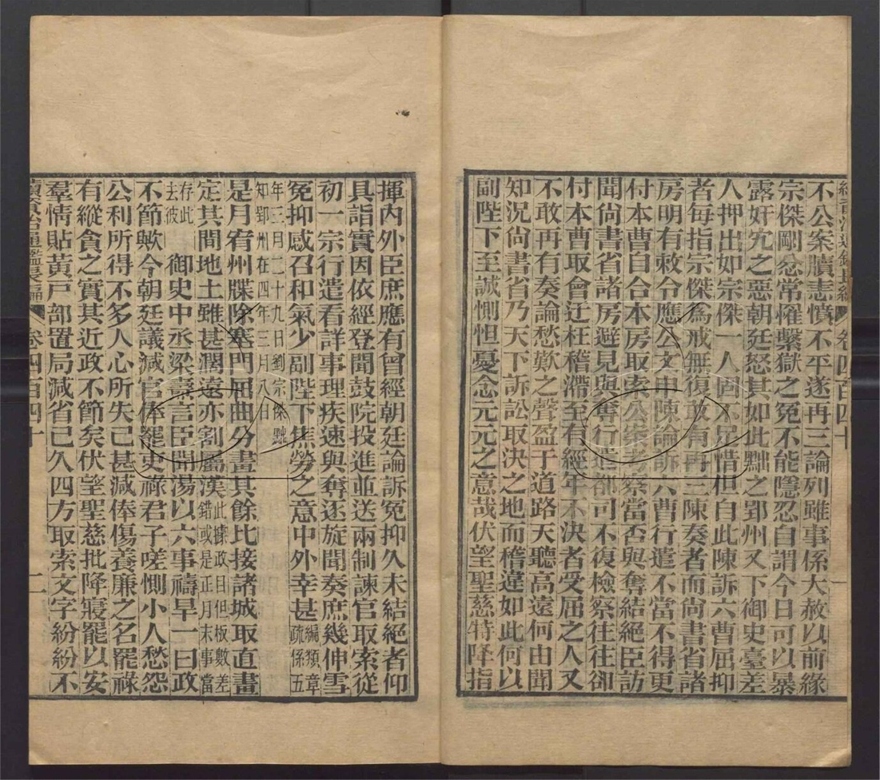 不公案牘恚憤不平遂再三論列雖事係大赦以前緣
宗傑剛忿常懼繫獄之冤不能隱忍自謂今日可以暴
露奸宄之惡朝廷怒其如此黜之鄆州又下御史臺差
人押出如宗傑一人固不足惜但自此陳訴六曹屈抑
者每指宗傑為戒無復敢有再三陳奏者而尚書省諸
房明有敕令應公文申陳論訴六曹行遣不當不得更
付本曹取自合本房取索公案考察當否與奪結絕臣訪
聞尚書省諸房避見與奪行遣卻可不復檢察往往卻
付本曹取會迂枉稽滯至有經年不決者受屈之人又
不敢再有奏論愁歎之聲盈于道路天聽高遠何由聞
知況尚書省乃天下訴訟取決之地而稽違如此何以
副陛下至誠惻怛憂念元元之意哉伏望聖慈特降指
續資治通鑑長編 卷四百四十 一
揮內外臣庶應有曾經朝廷論訴冤抑久未結絕者仰
具詣實因依經登聞鼓院投進並送兩制諫官取索從
初一宗行遣看詳事理疾速與奪逐旋聞奏庶幾伸雪
冤抑感召和氣少副陛下焦勞之意中外幸甚編類章疏係五
年三月二十九日劉宗傑黜知鄆州在四年三月八日
是月宥州牒除塞門屈曲分畫其餘比接諸城取直畫
定其間地土雖甚濶遠亦割屬漢此據政目但板數差錯或是正月末事當
存此去彼 御史中丞梁燾言臣聞湯以六事禱旱一曰政
不節歟今朝廷議減官俸罷吏祿君子嗟惻小人愁怨
公利所得不多人心所失已甚減俸傷養廉之名罷祿
有縱貪之實其近政不節矣伏望聖慈批降寢罷以安
羣情貼黃戶部置局減省已久四方取索文字紛紛不
續資治通鑑長編 卷四百四十 二